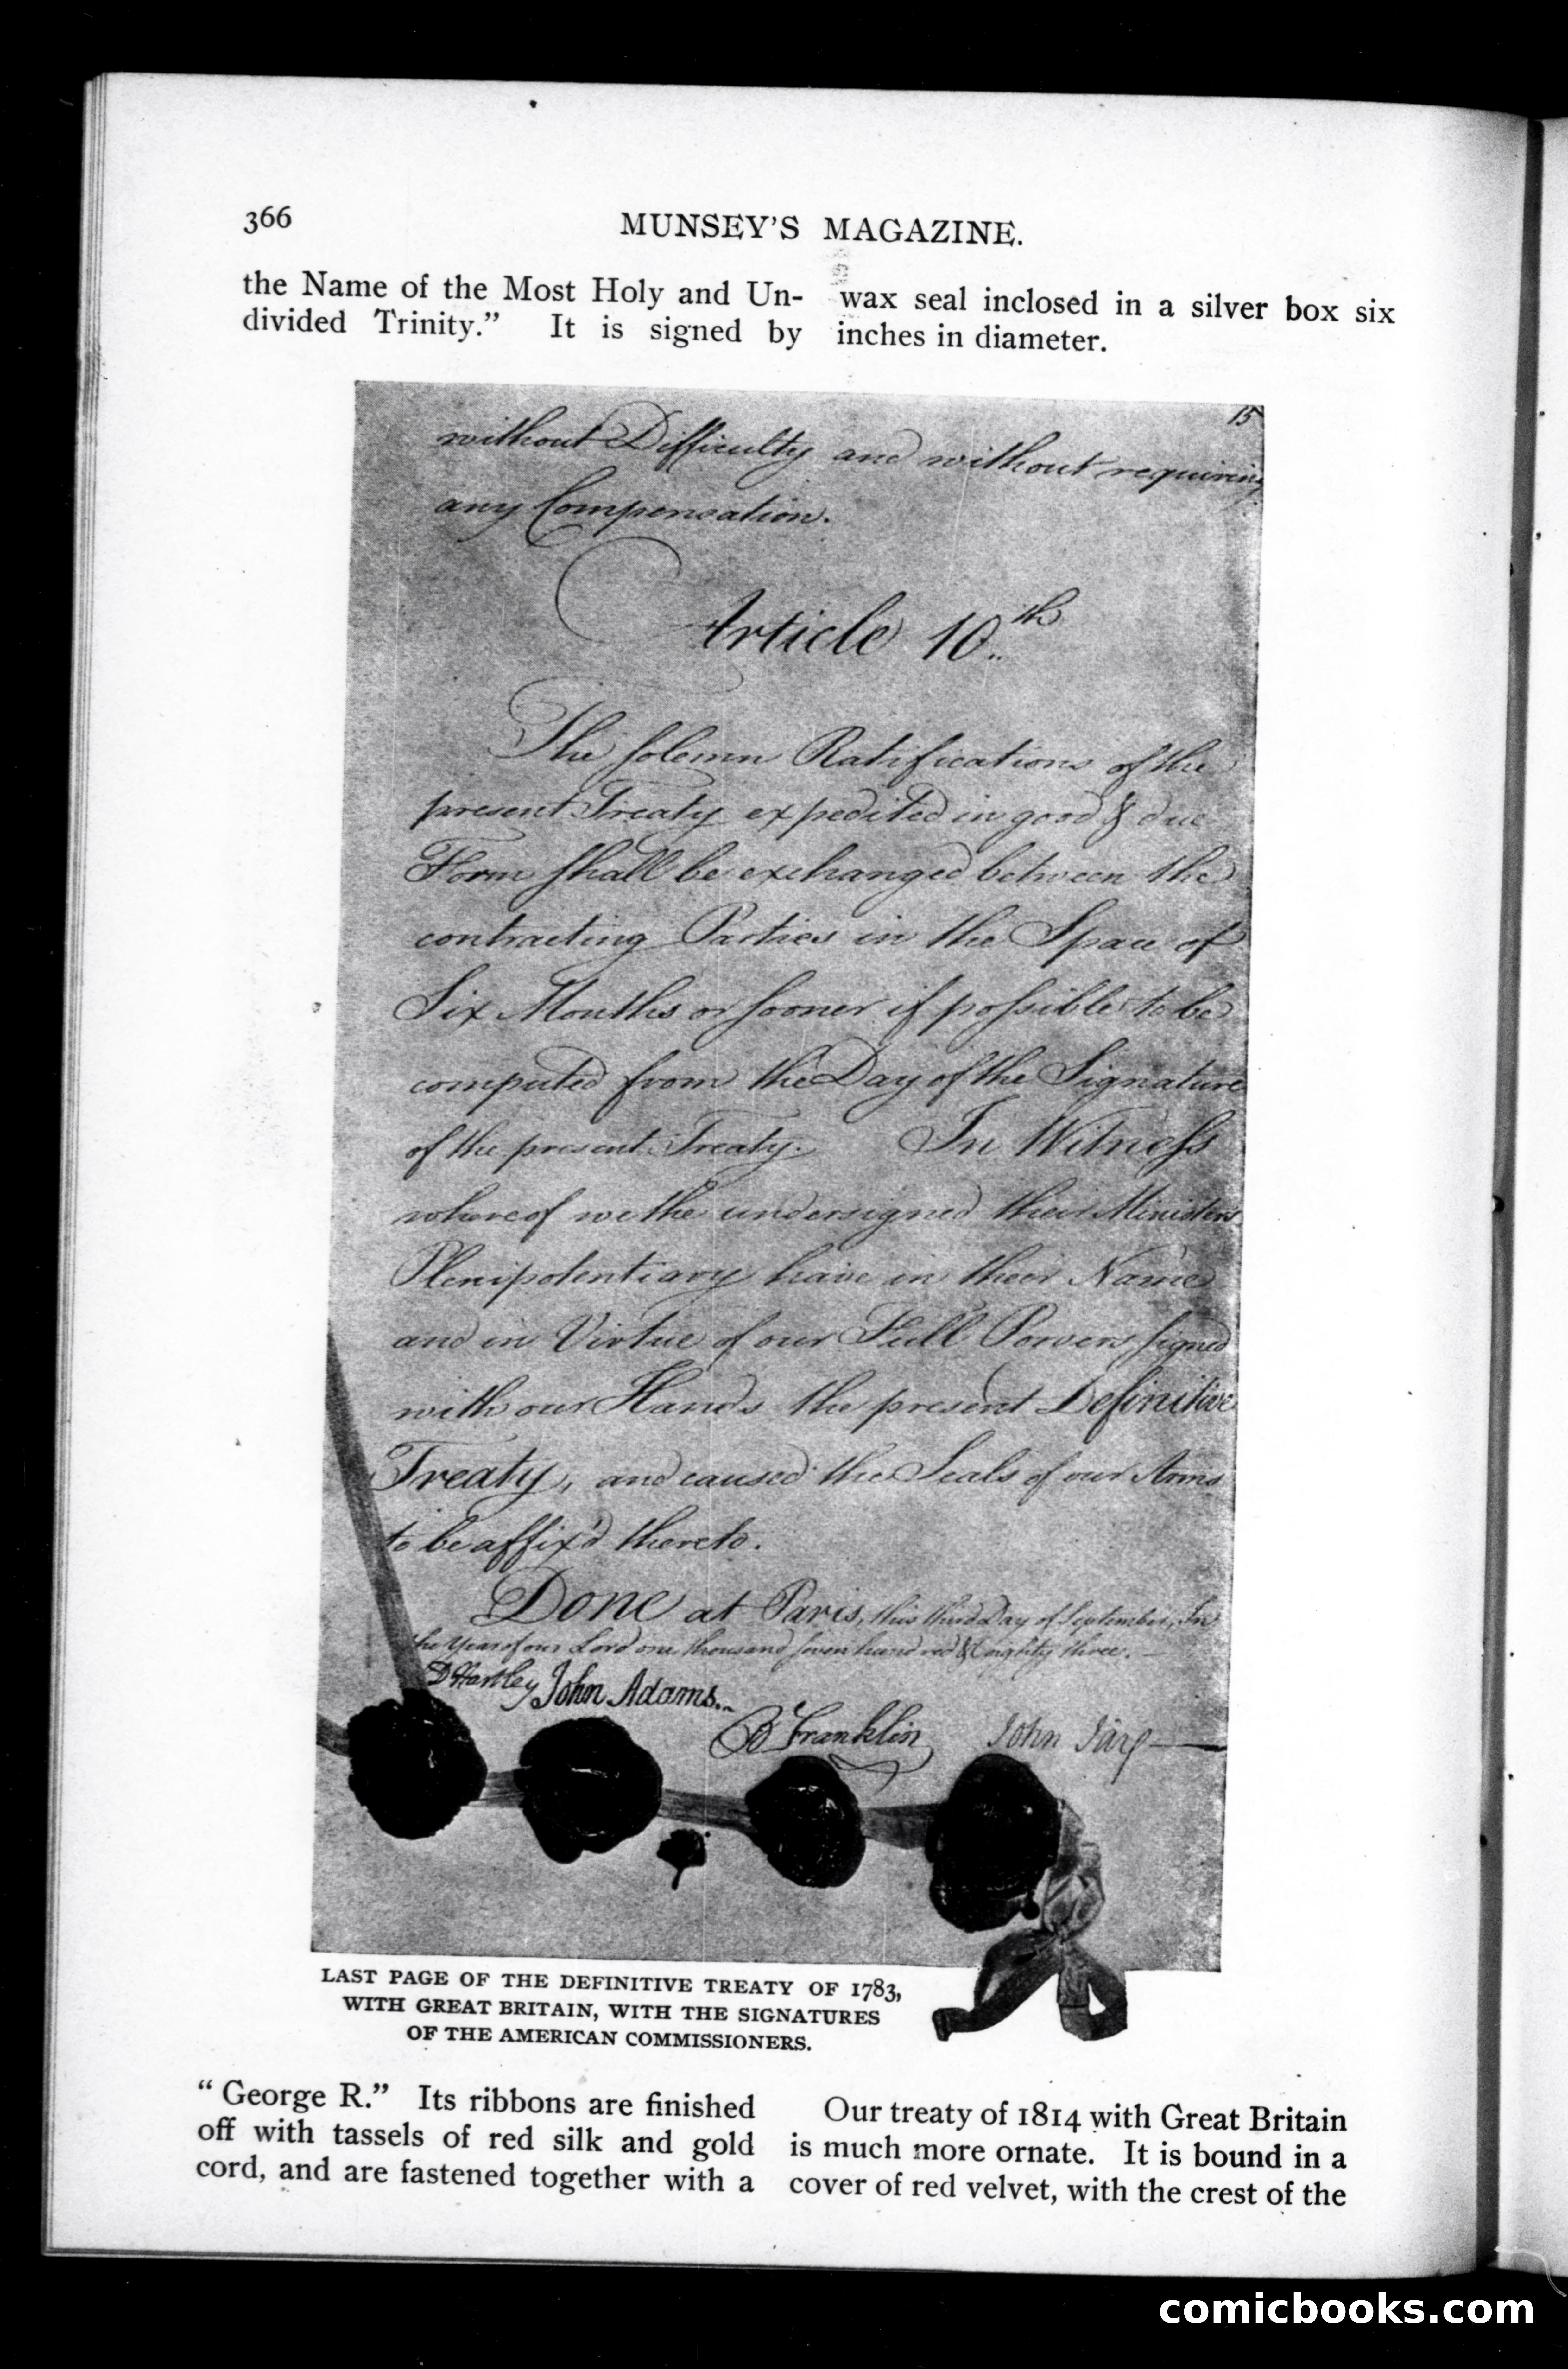 366
MUNSEY'S MAGAZINE.
the Name of the Most Holy and Un-
divided Trinity." It is signed by
wax seal inclosed in a silver box six
inches in diameter.
15
without Difficulty and without requiring
any Compensation.
Article 10th
The solemn Ratifications of the
present Treaty expedited in good & due
Form shall be exchanged between the
contracting Parties in the Space of
Six Months or sooner if possible to be
computed from the Day of the Signature
of the present Treaty. In Witness
whereof we the undersigned their Ministers
Plenipotentiary have in their Name
and in Virtue of our Full Powers signed
with our Hands the present Definitive
Treaty, and caused the Seals of our Arms
to be affix'd thereto.
Done at Paris, this third Day of September, In
the Year of our Lord one thousand seven hundred & eighty three.
D Hartley John Adams.
B Franklin John Jay
LAST PAGE OF THE DEFINITIVE TREATY OF 1783,
WITH GREAT BRITAIN, WITH THE SIGNATURES
OF THE AMERICAN COMMISSIONERS.
"George R." Its ribbons are finished
off with tassels of red silk and gold
cord, and are fastened together with a
Our treaty of 1814 with Great Britain
is much more ornate. It is bound in a
cover of red velvet, with the crest of the
comicbooks.com